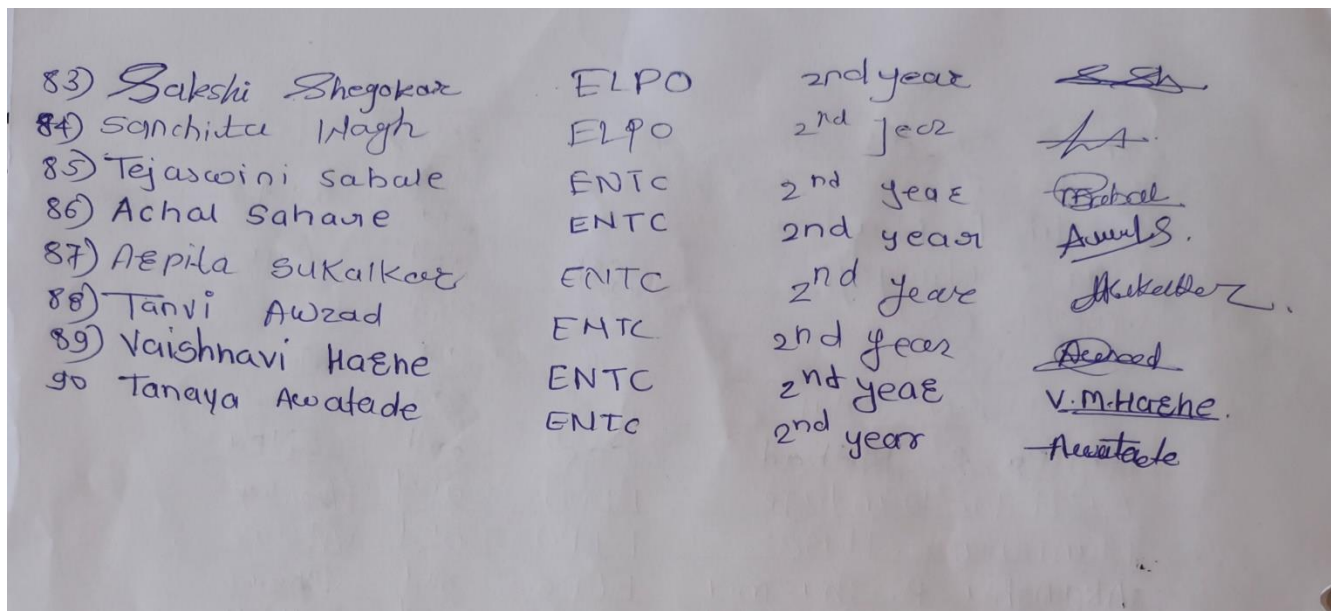 83) Sakshi Shegokar ELPO 2nd year
84) Sanchita Wagh ELPO 2nd year
85) Tejaswini sabale ENTC 2nd year
86) Achal Sahare ENTC 2nd year
87) Arpita Sukalkar ENTC 2nd year
88) Tanvi Awzad ENTC 2nd year
89) Vaishnavi Harne ENTC 2nd year V.M.Harne.
90 Tanaya Awatade ENTC 2nd year Awatade